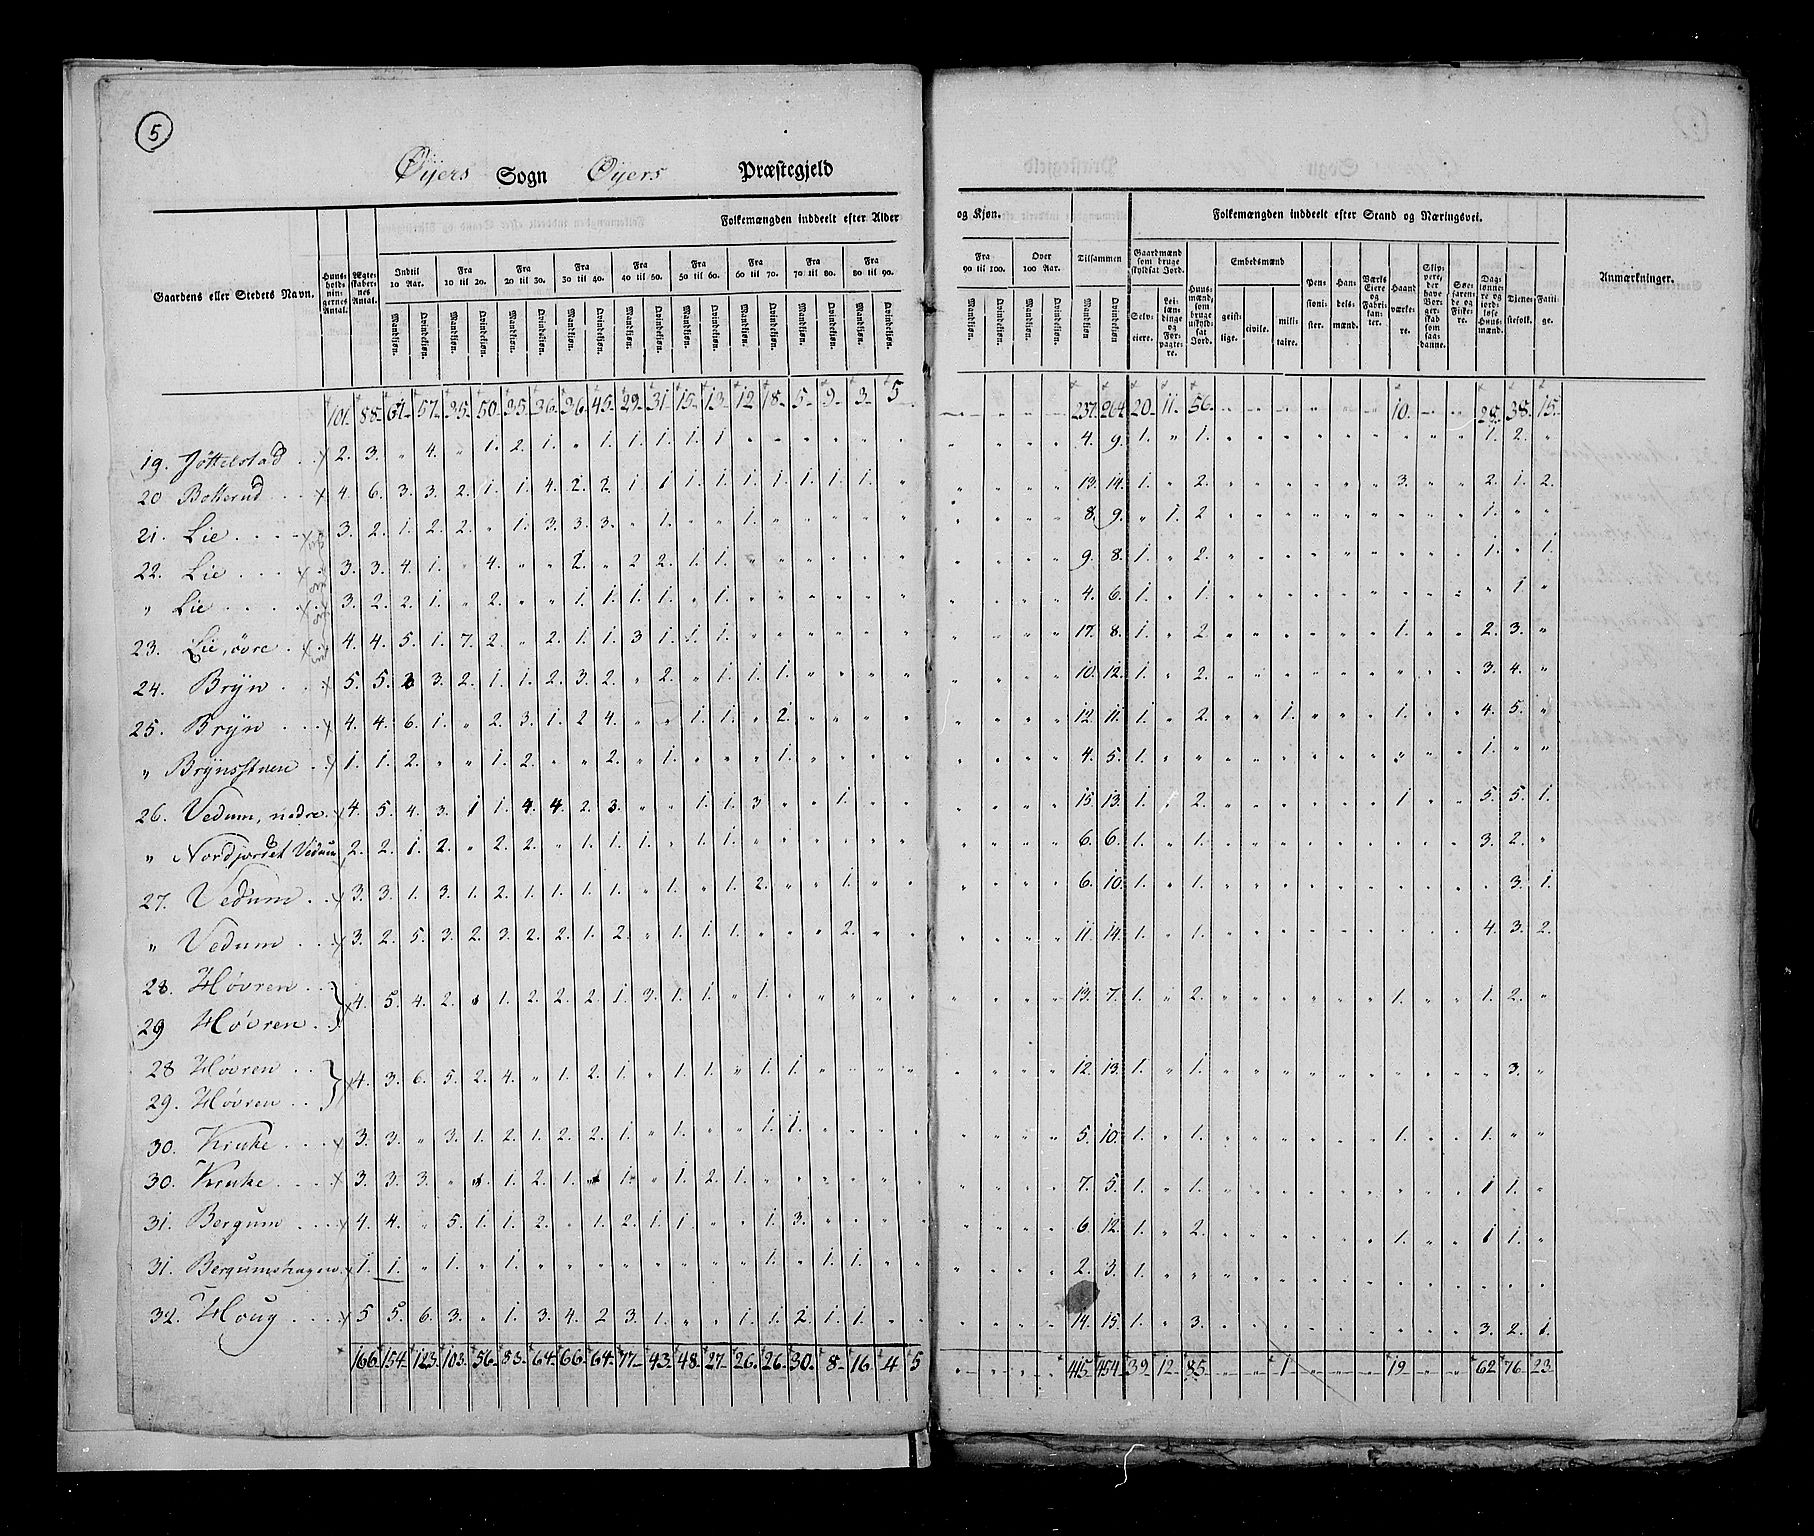 5
Øyers Sogn Øyers Præstegjeld
Folkemængden inddeelt efter Alder og Kjøn.
Folkemængden inddeelt efter Stand og Næringsvei.
Gaardens eller Stedets Navn.
Huus-holdnin-gernes Antal.
Ægte-skaber-nes Antal.
Indtil 10 Aar.
Fra 10 til 20.
Fra 20 til 30.
Fra 30 til 40.
Fra 40 til 50.
Fra 50 til 60.
Fra 60 til 70.
Fra 70 til 80.
Fra 80 til 90.
Fra 90 til 100.
Over 100 Aar.
Tilsammen
Mandkjøn. Qvindekjøn.
Gaardmænd som bruge skyldsat Jord.
Selv-eiere.
Lei-læn-dinge og For-pagte-re.
Huus-mænd, som bruge uskyld-sat Jord.
Embedsmænd
geist-lige.
civile.
mili-taire.
Pen-sioni-ster.
Han-dels-mænd.
Værks Eiere og Fabri-kan-ter.
Haand-værke-re.
Søe-farende og Fiske-re.
Dag-lønne-re og jord-løse Huus-mænd.
Tjene-stefolk.
Fatti-ge.
Anmærkninger.
101. 88. 61. 57. 35. 50. 35. 36. 36. 45. 29. 31. 15. 13. 12. 18. 5. 9. 3. 5 237. 264. 20. 11. 56. 10. 28. 38. 15.
19. Jøttelstad 2. 3. " 4. " 1. 2. 1. " 1. 1. 1. 1. 1. 4. 9. 1. " 1. 1. 2. "
20 Botterud 4. 6. 3. 3. 2. 1. 1. 4. 2. 2. 1 1 1. 1. 1. 1. 1. 1. 1. " 13. 14. 1. " 2. 3. 2. 1. 2.
21. Lie 3. 2. 1. 2. 2. " 1. 3. 3. 3. " 1. " " 1. 8. 9. " 1. 2 1. " "
22. Lie 3. 3. 4. 1. " 4. " " 2. " 2 2. 1. 1. 9. 8. 1. " 2. 1. " 1.
" Lie 3. 2. 2. 1. " 2. " " 1. 1. 1. 1. " 1. 4. 6. 1. " 1. " 1 "
23. Lie, øvre 4. 4. 5. 1. 7. 2. " 2. 1. 1. 3 1. 1. 1. 17. 8. 1. " 2. 1. 2. 3. "
24. Brÿn 5. 5. 3 3. 2. 1. 1. 2. 3. 2. " 2. " 1. 1. 1. 10. 12. 1. " 2. 3. 4. "
25. Brÿn 4. 4. 6. 1. " 2. 3. 1. 2 4. " " 1. 1. " 2. 12. 11. 1. " 2. 1. 1. 4. 5. "
" Brÿnsstuen 1. 1. 2. " " 1. 2. " " 2. " 1. " " " 1. 4. 5. 1. 1. " "
26. Vedum, nedre 4. 5. 4. 3. 1 1. 4. 4. 2. 3. " " 1. 1. 3 " " 1. 15. 13. 1. 2. 1 5. 5. 1.
" Nordjordet Vedum 2. 2. 1. 2. " 2. 2. " 1. 1. 1. " 1. 1. 6. 6. 1. " 1. 3. 2. "
27. Vedum 3. 3. 1. 3. 1. 2. 1. 1. 1. 1. " 1. " 1. 2. " " 1. " " 6. 10. 1. " 1. 3. 1.
" Vedum 3. 2. 5. 3. 2. 3. 2. 2. 1. 2. " 1. 1. 1. " " " 2. " " 11. 14. 1. " 1. 4. 3. 2.
28. Høvren
29 Høvren 4. 5. 4. 2. 1. 2. 2. 2. 1. 3. 1. 1. " 1. 13. 7. 1. " 2. 1. 1. 2. "
28 Høvren
29. Høvren 4. 3. 6. 5. 2. 4. " 1. 2. 1. " 1. 1. " 1. 1. 12. 13. 1. " 1. 3. "
30. Kruke 3. 3. " 3. 1. 2. 1. 2. 2. 1. " 1. " " 1. 1. 5. 10. 1. " 1. 1. 1. " "
30. Kruke 3. 3. 3. " 1. 2. 1. 1. " 1. 2. 1. 7. 5. 1. " 1. 1 1. "
31. Bergum 4. 4. " 5. 1. 1. 2. " 1. 2. 1. 1. " " 1. 3. 6. 12. 1. " 2. 1. 1 1. "
31. Bergumshagen 1. 1. " 1. " 1. 1. " 1. 1. 2. 3. 1.
32. Houg 5 5. 6. 3. " 1. 3. 4. 2 3. 1. " " 1. 1. 2. 1. 1. " " 14. 15. 1. " 3. 3. 2. 1.
166. 154. 123. 103. 56. 83. 64. 66. 64. 77. 43. 48. 27. 26. 26. 30. 8. 16. 4 5 415. 454. 39. 12. 85. 1 19. 62 76. 23.